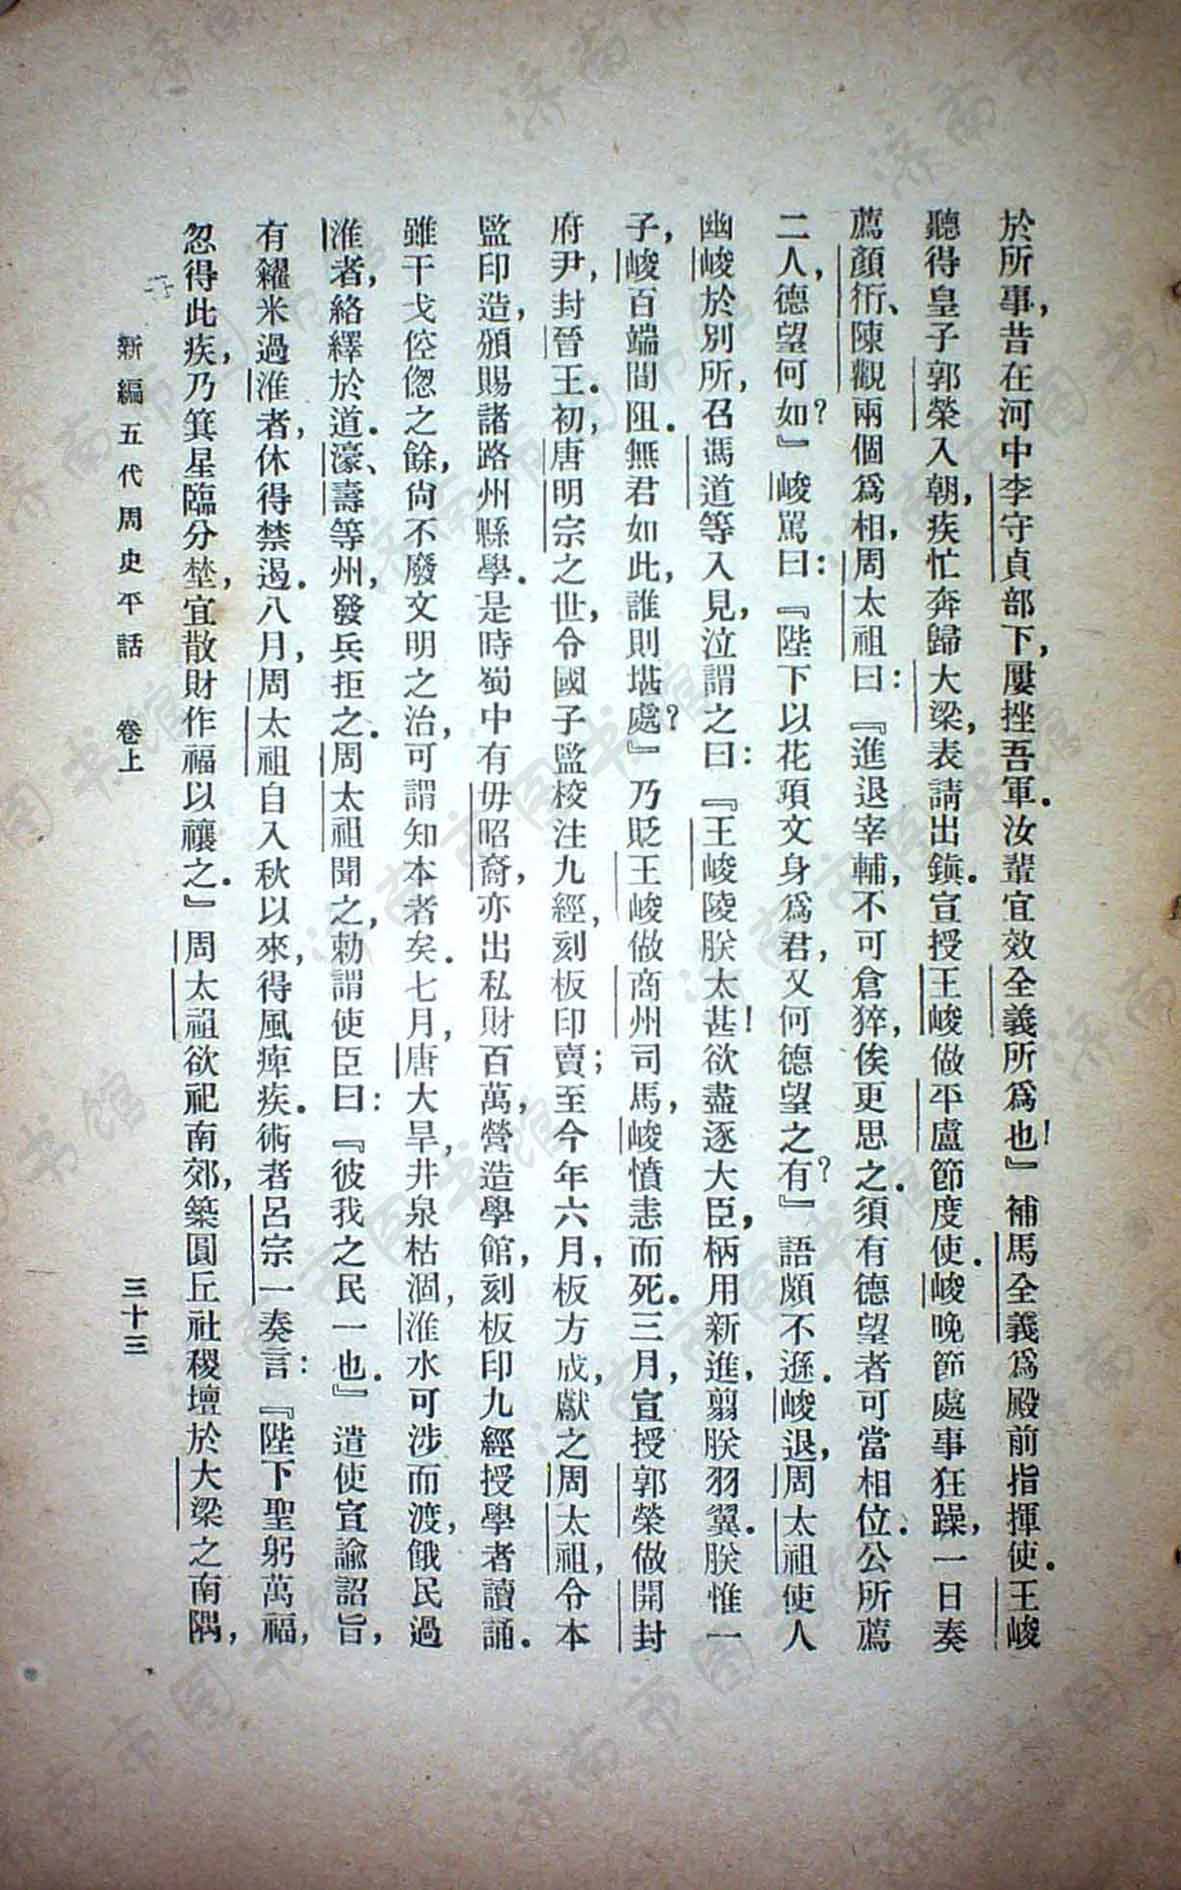 於所事，昔在河中李守貞部下，屢挫吾軍．汝輩宜效全義所爲也！』補馬全義爲殿前指揮使．王峻
聽得皇子郭榮入朝，疾忙奔歸大梁，表請出鎮．宣授王峻做平盧節度使．峻晚節處事狂躁，一日奏
薦顏衎、陳觀兩個爲相，周太祖曰：『進退宰輔，不可倉猝，俟更思之．須有德望者可當相位．公所薦
二人，德望何如？』峻駡曰：『陛下以花項文身爲君，又何德望之有？』語頗不遜．峻退，周太祖使人
幽峻於別所，召馮道等入見，泣謂之曰：『王峻陵朕太甚！欲盡逐大臣，柄用新進，翦朕羽翼．朕惟一
子，峻百端間阻．無君如此，誰則堪處？』乃貶王峻做商州司馬，峻憤恚而死．三月，宣授郭榮做開封
府尹，封晉王．初，唐明宗之世，令國子監校注九經，刻板印賣；至今年六月，板方成，獻之周太祖，令本
監印造，頒賜諸路州縣學．是時蜀中有毋昭裔，亦出私財百萬，營造學館，刻板印九經授學者讀誦．
雖干戈倥偬之餘，尙不廢文明之治，可謂知本者矣．七月，唐大旱，井泉枯涸，淮水可涉而渡，餓民過
淮者，絡繹於道．濠、壽等州，發兵拒之．周太祖聞之，勅謂使臣曰：『彼我之民一也．』遣使宣諭詔旨，
有糴米過淮者，休得禁遏．八月，周太祖自入秋以來，得風痺疾．術者呂宗一奏言：『陛下聖躬萬福，
忽得此疾，乃箕星臨分埜，宜散財作福以禳之．』周太祖欲祀南郊，築圓丘社稷壇於大梁之南隅，
新編五代周史平話　卷上　三十三
济南市图书馆